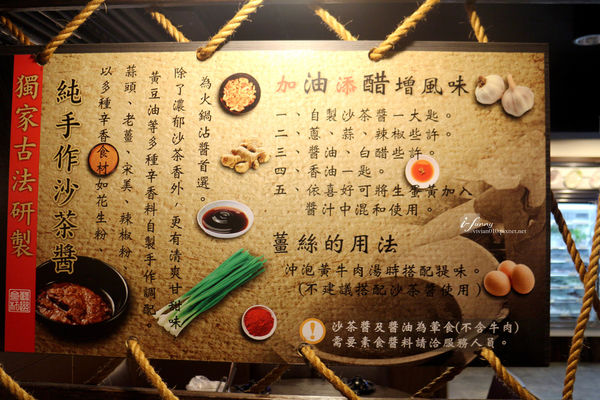 獨家古法研製
純手作沙茶醬
以多種辛香食材如花生粉、
蒜頭、老薑、宋美、辣椒粉、
黃豆油等多種辛香料自製手作調配。
除了濃郁沙茶香外，更有清爽甘甜味
為火鍋沾醬首選。
加油添醋增風味
一、自製沙茶醬一大匙。
二、蔥、蒜、辣椒些許。
三、醬油、白醋些許。
四、香油一匙。
五、依喜好可將生蛋黃加入
醬汁中混和使用。
薑絲的用法
沖泡黃牛肉湯時搭配提味。
(不建議搭配沙茶醬使用)
沙茶醬及醬油為葷食(不含牛肉)
需要素食醬料請洽服務人員。